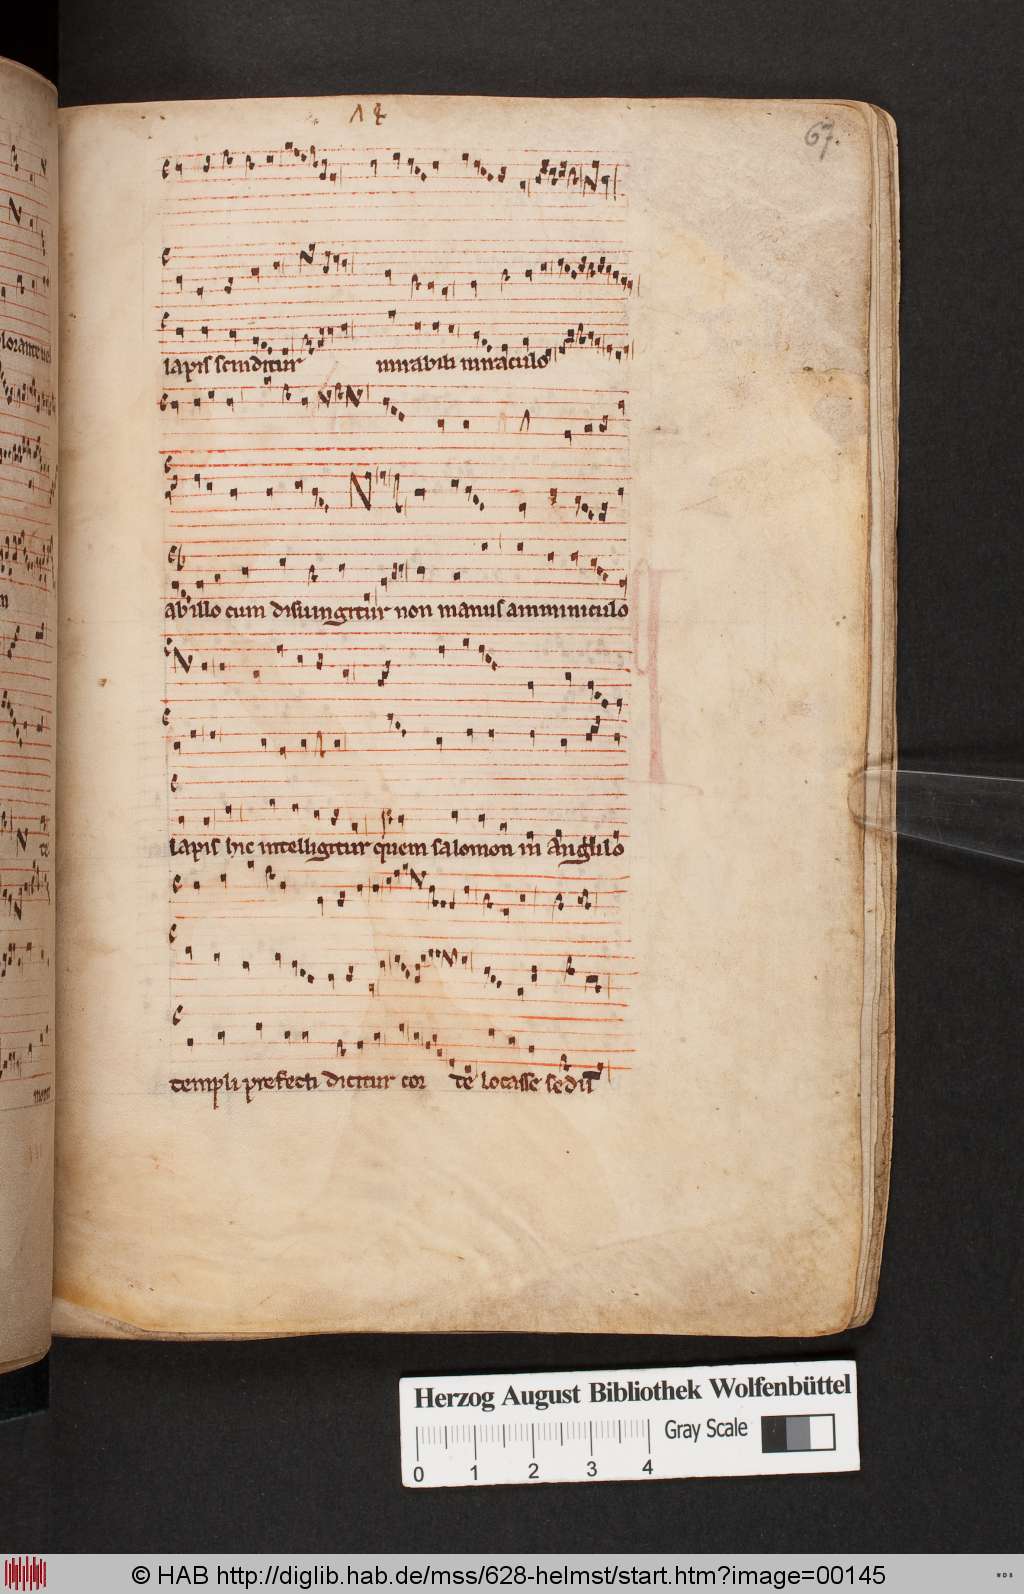 14
67.
lorante uel
lapis scinditur mirabili miraculo
ab illo cum disiungitur non manus amminiculo
te
lapis hic intelligitur quem salomon in angulo
templi prefecti dicitur cor te locasse
Herzog August Bibliothek Wolfenbüttel
Gray Scale
0 1 2 3 4
© HAB http://diglib.hab.de/mss/628-helmst/start.htm?image=00145